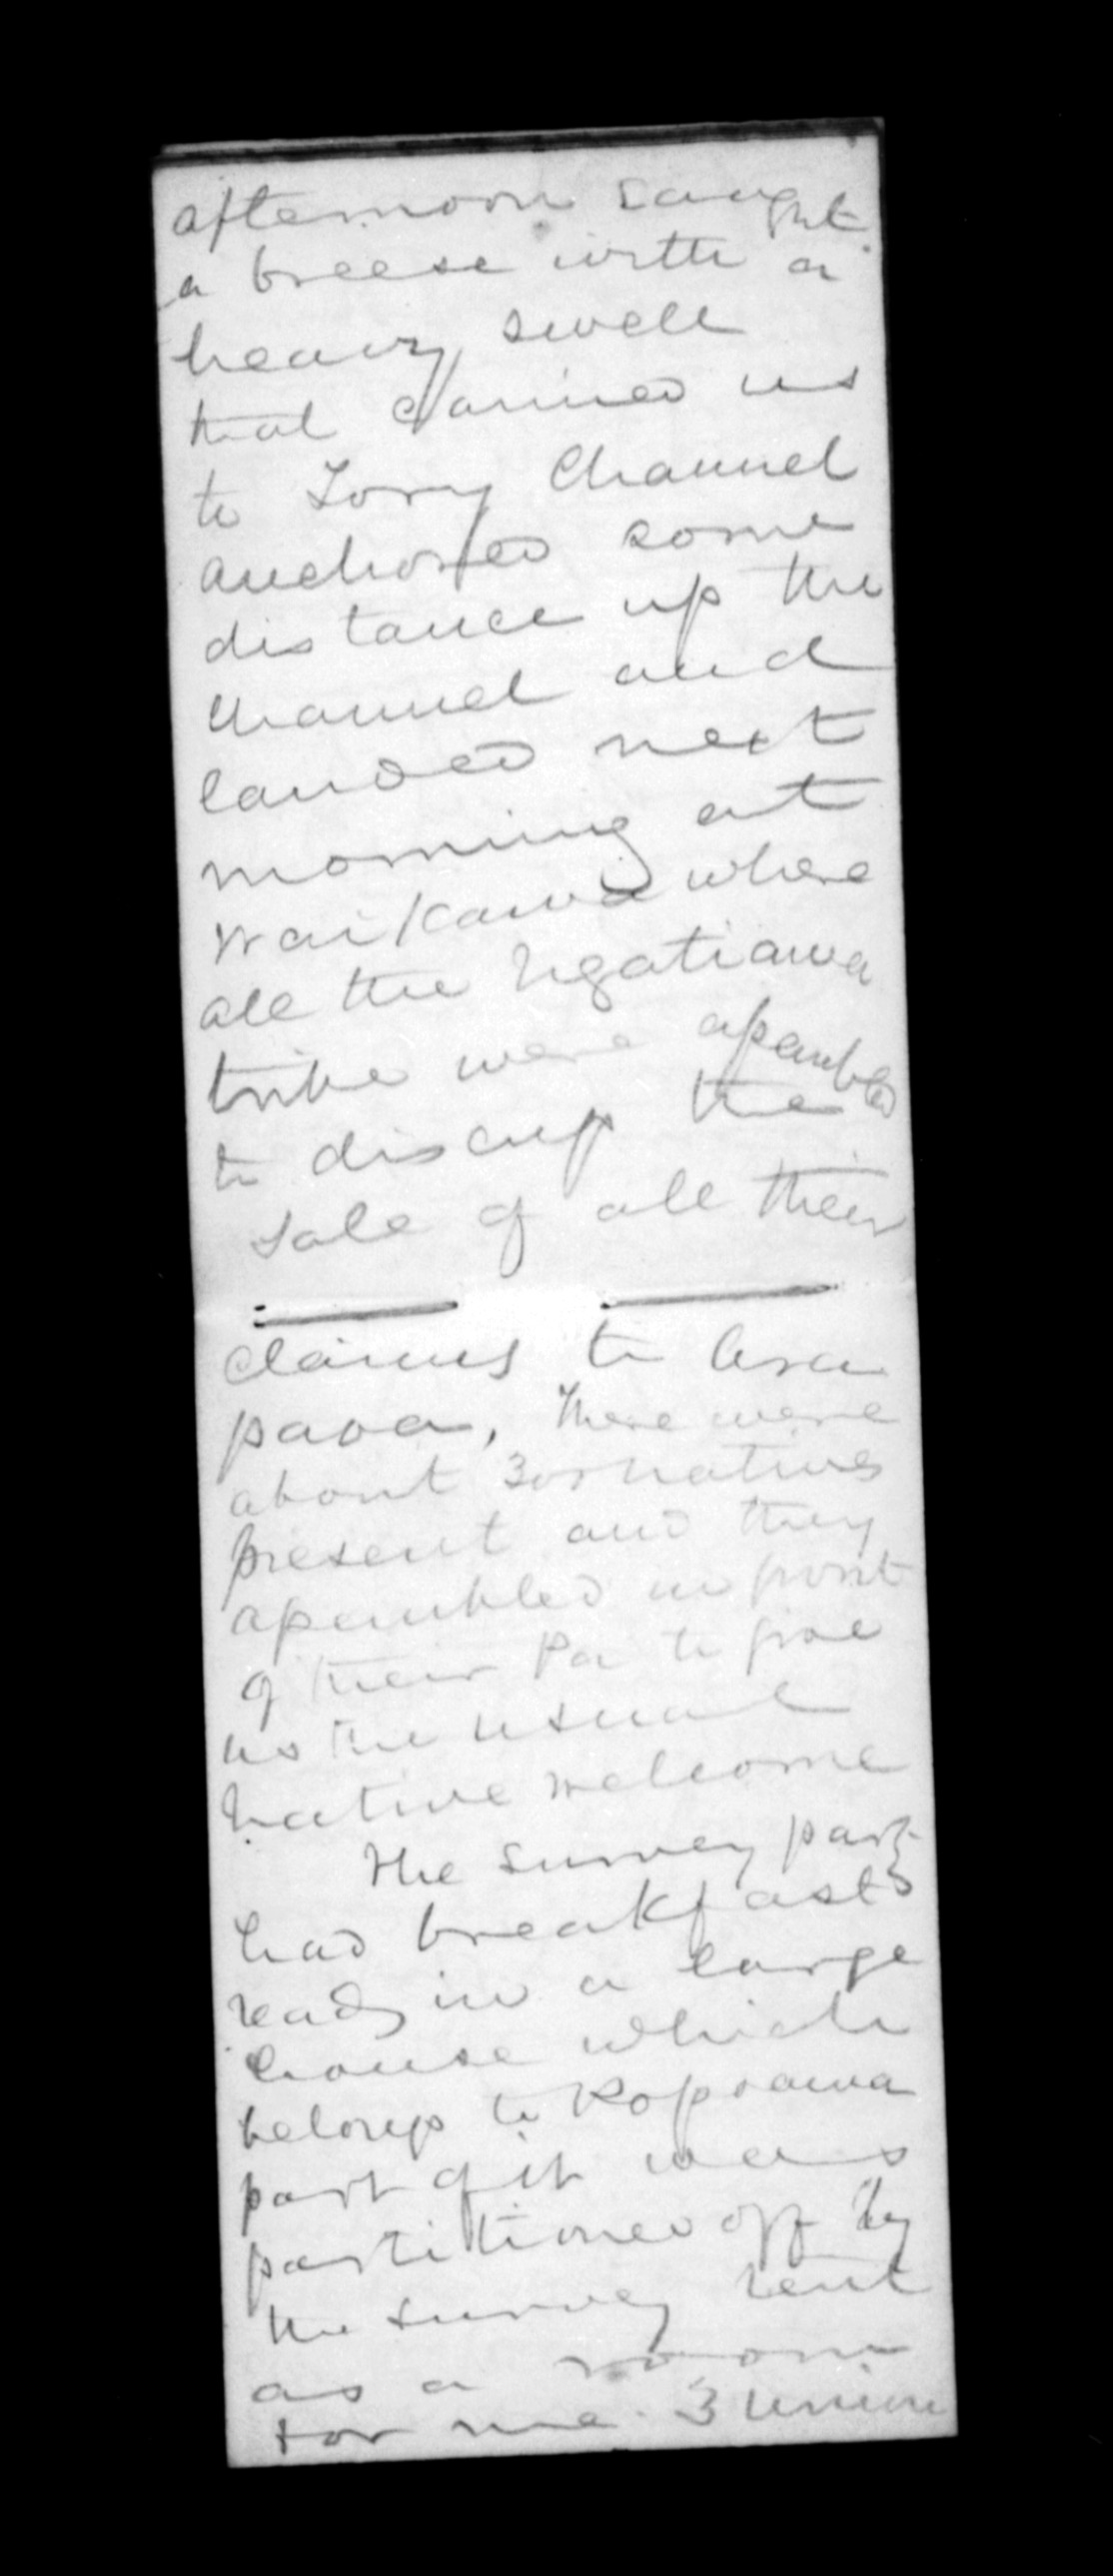 afternoon caught
a breese with a
heavy swell
that carried us
to Tory Channel
anchored some
distance up the
Channel and
landed next
morning at
Waikawa where
all the Ngatiawa
tribe were assembled
to discuss the
sale of all their
claims to Ara
paoa, There were
about 300 natives
present and they
assembled in front
of their Pa to give
us the usual
native welcome
The Survey party
had breakfast
ready in a large
house which
belongs to Ropoama
part of it was
partitioned off by
the survey tent
as a room
for me. 3 Union